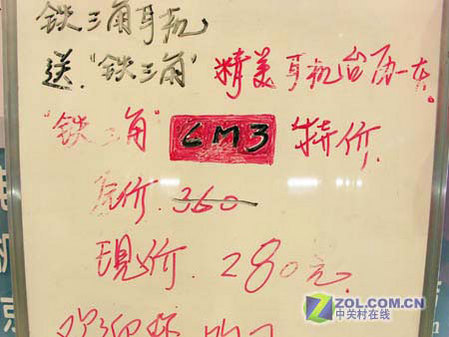 铁三角耳机
送."铁三角" 精美耳机台历一本
"铁三角" CM3 特价
原价.360
现价.280元
欢迎
ZOL.COM.CN
中关村在线